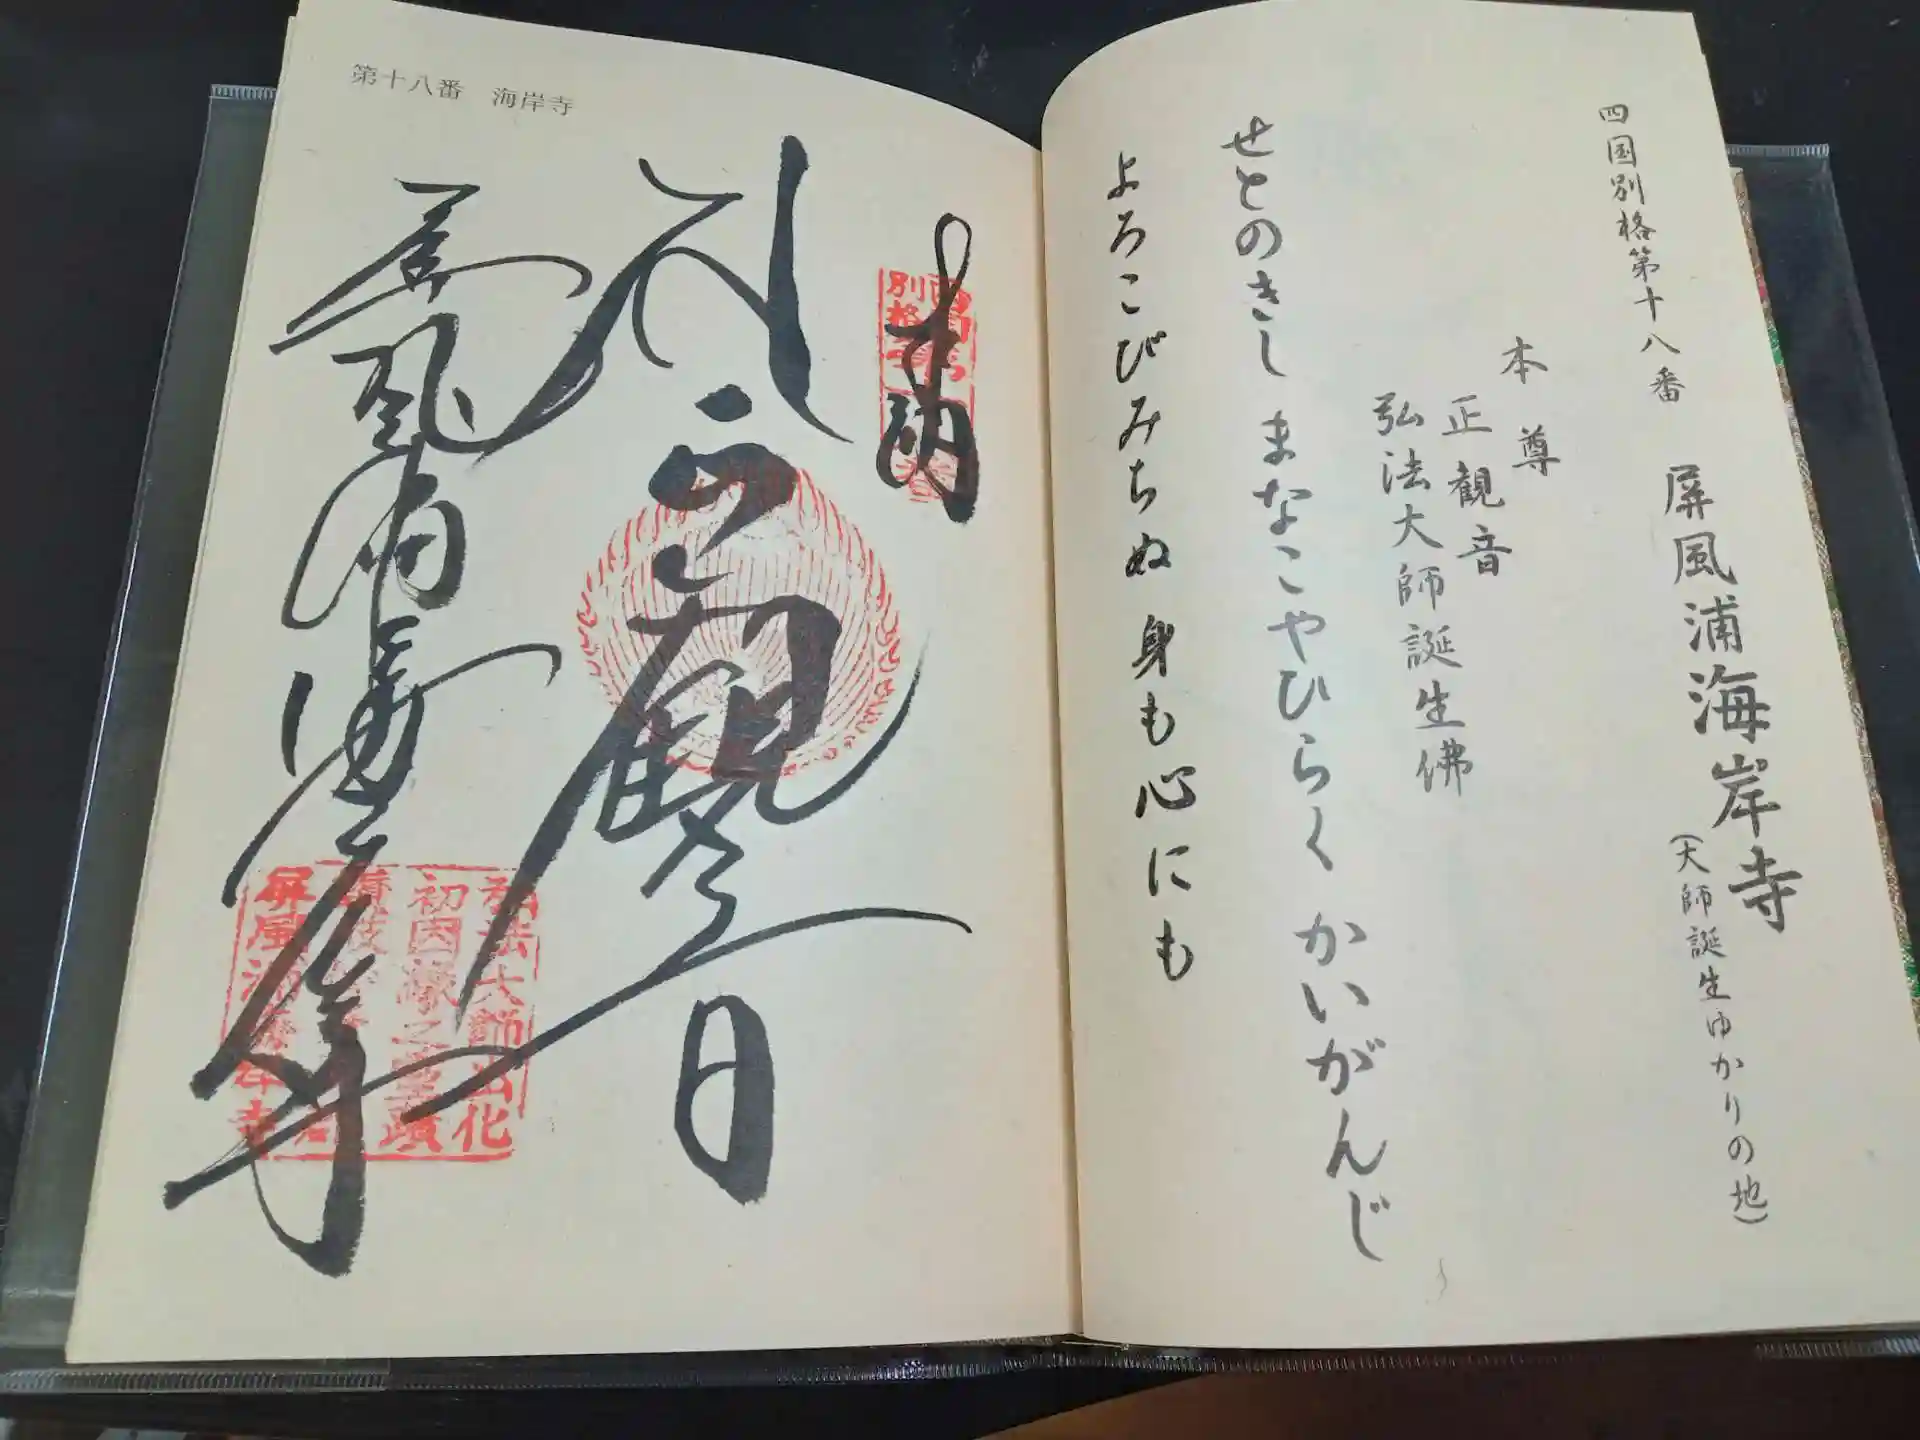 四国別格第十八番
屏風浦海岸寺
(大師誕生ゆかりの地)
本尊
正観音
弘法大師誕生佛
せとのきし まなこやひらく かいがんじ
よろこびみちぬ 身も心にも
第十八番 海岸寺
奉納
観音
屏風浦海岸寺
弘法大師出化
初因縁之霊蹟
屏風浦海岸寺